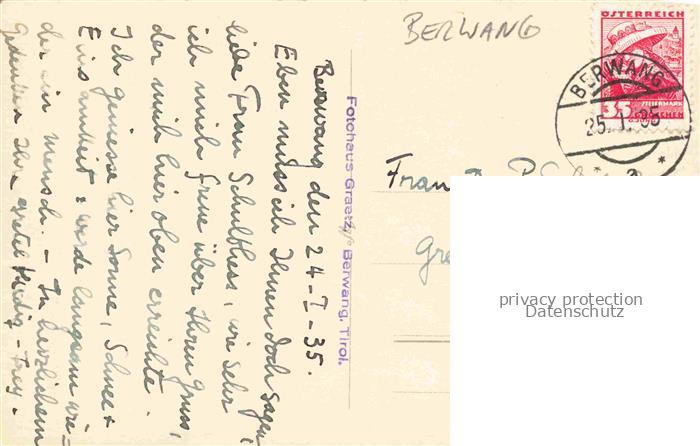 BERWANG
ÖSTERREICH
BERWANG
25. I. 35
35
STEIERMARK
GROSCHEN
Fotohaus Graetz, Berwang, Tirol.
Berwang den 24-I-35.
Eben muss ich Ihnen doch sagen,
liebe Frau Schulthess, wie sehr
ich mich freue über Ihren Gruss,
der mich hier oben erreichte.
Ich geniesse hier Sonne, Schnee +
Einsamkeit + werde langsam wie-
der ein Mensch. – In herzlichem
Gedenken Ihre
Frau
privacy protection
Datenschutz